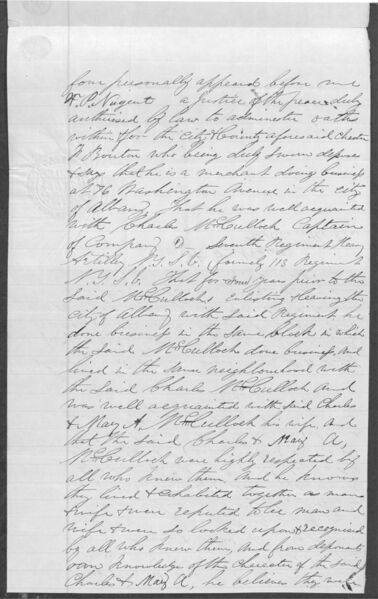 fore personally appeared before me
F. P. Nugent a Justice of the peace duly
authorised by law to administer oaths
within & for the City & County aforesaid Chester
F. Bouton who being duly sworn deposes
& says that he is a merchant doing business
at 76 Washington Avenue in the City
of Albany That he was well acquainted
with Charles McCulloch Captain
of Company D Seventh Regiment Heavy
Artillery N.Y.S.V. (formerly 113 Regiment
N.Y.S.V. That for some years prior to the
said McCullochs Enlisting & leaving the
City of Albany with said Regiment he
done business in the same block in which
the said McCulloch done business, and
lived in the same neighbourhood with
the said Charles McCulloch and
was well acquainted with said Charles
& Mary A, McCulloch his wife, and
that the said Charles & Mary A,
McCulloch were highly respected by
all who knew them, And he knows
they lived & cohabited together as man
& wife & were reputed to be man and
wife & were so looked upon & recognised
by all who knew them, And from deponents
own knowledge of the character of the said
Charles & Mary A, he believes they were